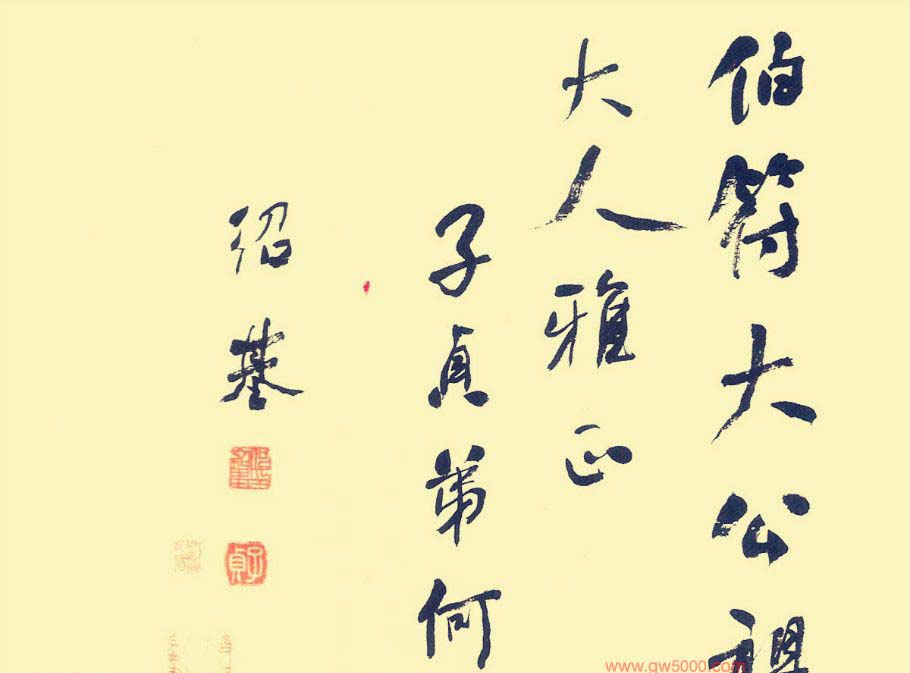 伯符大公祖
大人雅正
子貞弟何
紹基
子貞
www.gw5000.com